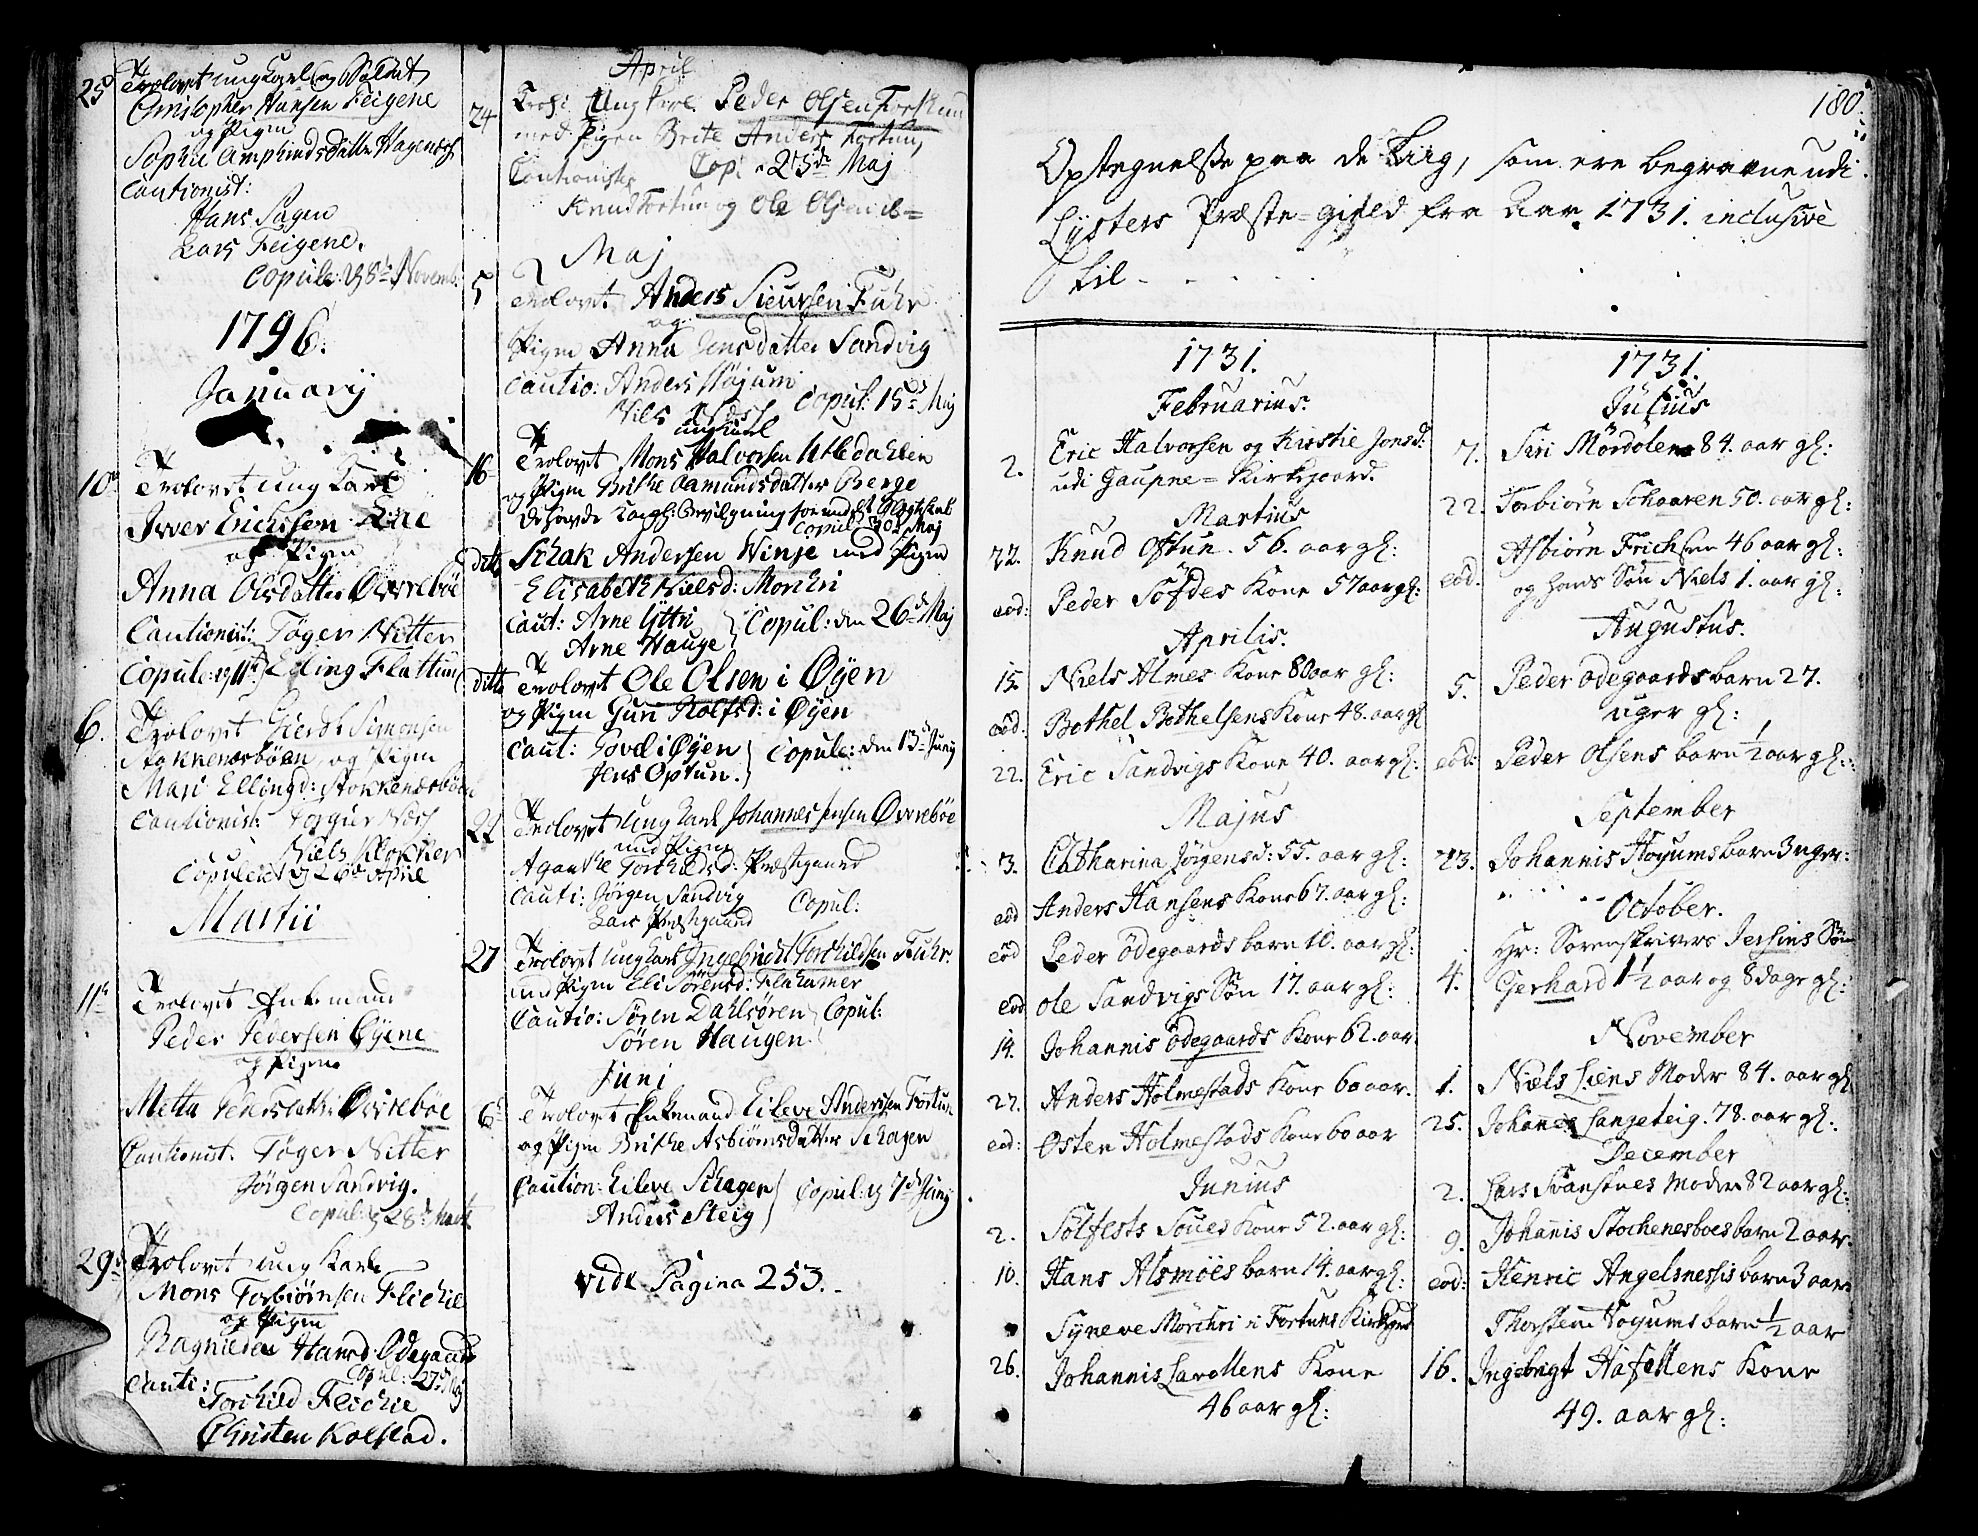 25 Trolovet ung Karl og Soldat
Christopher Hansen Feigene
og Pigen
Sophie Amphindsdatter
Cautionist:
Hans Sagen
Lars Feigene.
Copule: 8 Novemb:
1796.
Januarij
10 Trolovet ung Karl
Iver Erichsen
og Pigen
Anna Olsdatter Øvrebøe
Cautionist: Tøger Nitter
Copule: 11 Elling Flattum
6. Trolovet Simonsen
Stokkenæsbøen og Pigen
Mari Ellingd: Stokkenæsbøen
Cautionist: Torgier Næss
Niels Klokker
Copuleret d 26 April
Martii
11 Trolovet Enkemand
Peder Pedersen Øyene
og Pigen
Metta Øvrebøe
Cautionist. Tøger Nitter
Jørgen Sandvig.
Copul: d 28 Martii
29 Trolovet ung Karl
Mons Torbiørnsen Flichie
og Pigen
Ragnilda Hansd: Odegaard
Copul: 27 Maj
Cauti: Torchild Flichie
Christen Kolstad.
April
24 Ung Karl Peder Olsen Fortun
med Pigen Brite Anders Fortun
Cautionister Cop: 25de Maj
Knud Fortun og Ole Olsen
Maj
5 Trolovet Anders Siursen Fuhr
og
Pigen Anna Jensdatter Sandvig
Cautio: Anders Høјum
Niels Copul: 15 Maj
ung Karl
16 Trolovet Mons Halvorsen
og Pigen Brithe Aamundsdatter Berge
Copul: 30 Maj
ditto Schak Andersen Winje med Pigen
Elisabeth Nielsd: Morchri
Caut: Arne Yttri Copul: den 26 Maj
Arne Hauge
ditto Trolovet Ole Olsen i Øyen
og Pigen Guri Rolfsd: i Øyen
Caut: i Øyen Copule: den 13 Junij
Jens Optun.
22 Trolovet Ung Karl Johannes Jensen Øvrebøe
med Pigen
Aganthe Torchildsd: Præstgaard
Cauti: Jørgen Sandvig Copul:
Lars Præstgaard
27 Trolovet ung Karl Ingebricht Torchildsen Fuhr.
med Pigen Eli Sørensd: Flahamer
Cautio: Søren Dahlsøren Copul:
Søren Haugen
Junj
6 Trolovet Enkemand Eileve Andersen Fortun
og Pigen Brithe Asbiørnsdatter Schagen
Caution: Eileve Schagen Copul: d 7 Junij
Anders Steig
vide Pagina 253.
180.
Optegnelse paa de Liig, som ere begravne udi
Lysters Præste-gield fra Aar 1731. inclusive
til - - - -
1731.
Februarius.
2. Eric Halvorsen og Kirstie Jonsd:
udi Gaupne=Kirkegaard.
Martius
22. Knud Ostun. 56. aar gl:
eod: Peder Sofdes Kone 57 aar gl:
Aprilis.
15. Niels Almes Kone 80 aar gl:
eod. Bothel Bothelsens Kone 48. aar gl
22. Eric Sandvigs Kone 40. aar gl:
Majus
3. Catharina Jørgensd: 55. aar gl:
eod Anders Hansens Kone 67. aar gl:
eod Peder Ödegaards barn 10. aar gl:
eod Ole Sandvigs Søn 17. aar gl:
14. Johannis Ödegaards Kone 62. aar
27. Anders Holmestads Kone 60 aar.
eod: Osten Holmestads Kone 60 aar
Junius
2. Solfests Soues Kone 52. aar gl:
10. Hans Alsmöes barn 14. aar gl:
Syneve Mörchri i Fortuns Kirkegrd
26. Johannis Lavollens Kone
46 aar gl:
1731.
Julius
7. Siri 84. aar gl:
22. Torbiörn Schaaren 50. aar gl:
eod. Asbiörn Frichsen 46 aar gl:
og hans Søn Niels 1. aar gl:
Augustus.
5. Peder Odegaards barn 27.
uger gl:
eod: Peder Olsens barn 1/2 aar gl:
September
23. Johannis Hoyums barn 3 uger:
October.
Hr: Sorenskrivers Jersins Søn
4. Gerhard 1 1/2 aar og 8 dage gl:
November
1. Niels Liens Moder 84. aar gl
25. Johannes Langeteig. 78. aar gl:
December
2. Lars Svanstues Moder 82 aar gl:
9. Johannis Stochenesboes barn 2 aar.
eod: Henric Angelsnessis barn 3 aar
Thorsten Hoyums barn 1/2 aar
16. Ingebrigt Hafellens Kone
49. aar gl: